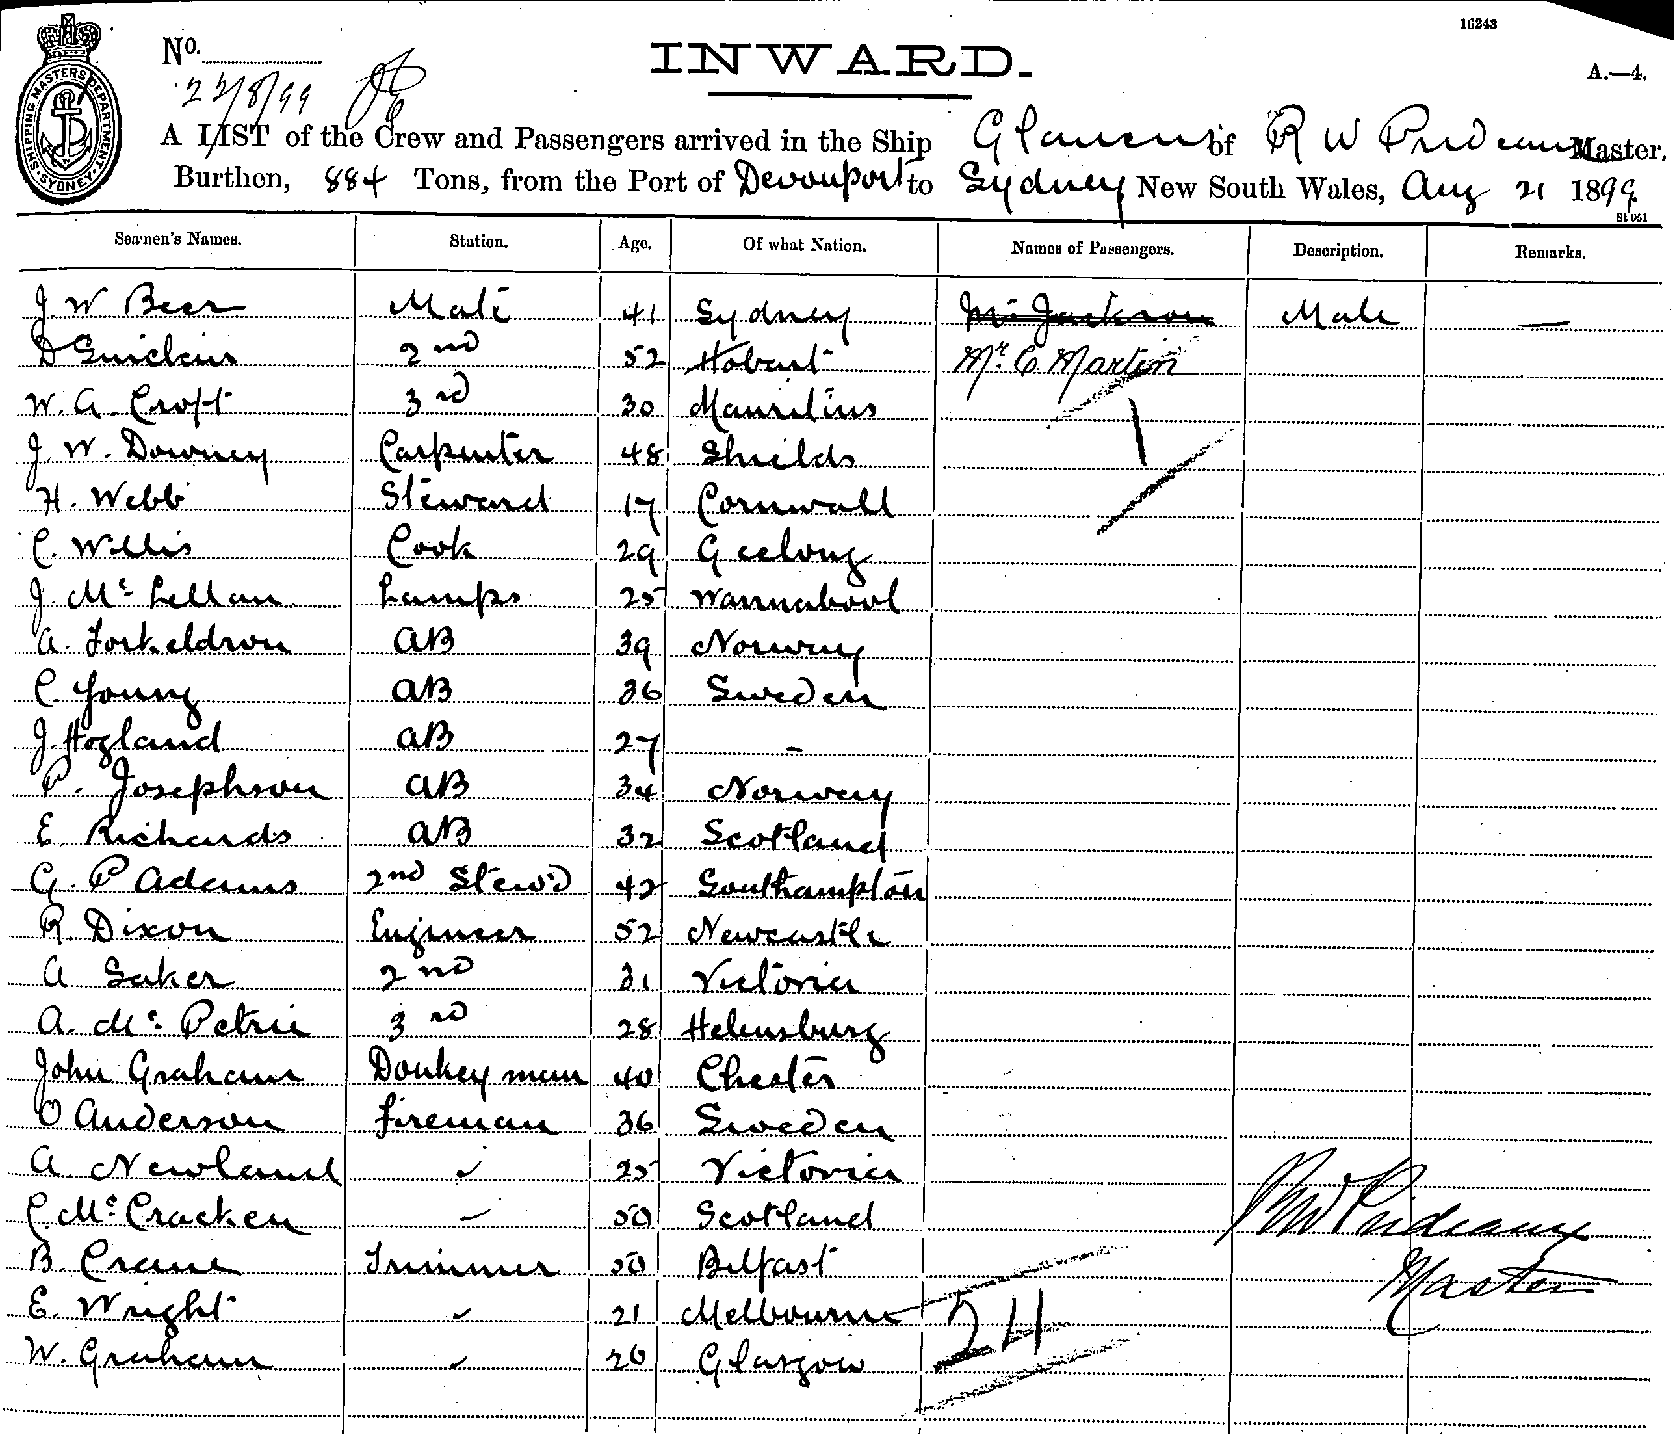 16243
No.
INWARD.
A.—4.
22/8/99
SHIPPING MASTERS DEPARTMENT SYDNEY
A LIST of the Crew and Passengers arrived in the Ship of R W Prideaux Master,
Burthen, 884 Tons, from the Port of Devonport to Sydney New South Wales, Aug 21 1899
St 061
Seamen's Names. Station. Age. Of what Nation. Names of Passengers. Description. Remarks.
J W Beer Mate 41 Sydney Mr Jackson Male —
D 2nd 52 Hobart Mr. C. Martin
W. A. Croft 3rd 30 Mauritius 1
J. W. Downey Carpenter 48 Shields
H. Webb Steward 17 Cornwall
C. Willis Cook 29 Geelong
J. Mc Lellan Lamps 25 Warrnabool
A. Torkeldson AB 39 Norway
C Young AB 36 Sweden
J. Hogland AB 27 -
P. Josephson AB 34 Norway
E Richards AB 32 Scotland
G. P Adams 2nd Stew'd 42 Southampton
R Dixon Engineer 52 Newcastle
A Saker 2nd 31 Victoria
A. Mc Petrie 3rd 28 Helensburg
John Graham Donkeyman 40 Chester
O Anderson Fireman 36 Sweden
A Newland ✓ 25 Victoria
C. Mc Cracken ✓ 50 Scotland
RW Prideaux
B Crane Trimmer 50 Belfast
Master
E. Wright ✓ 21 Melbourne 24
W. Graham ✓ 26 Glasgow